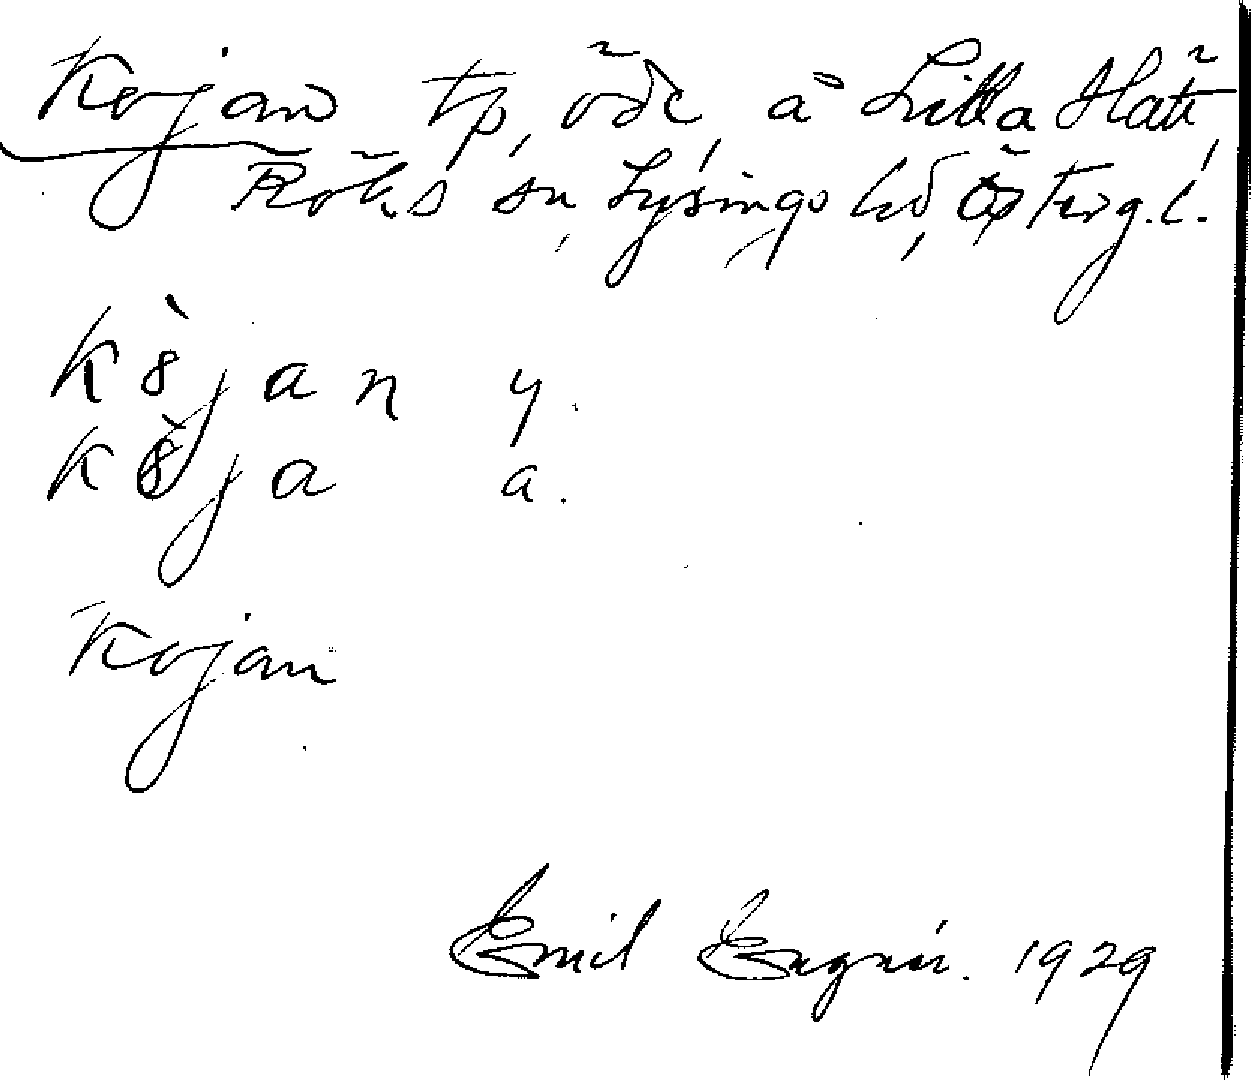 Kojan tp, öde, å Lilla Hätt,
Röks sn, Lysings hd, Östergl.
Kòjan y.
Kòja a.
Kojan
Emil 1929